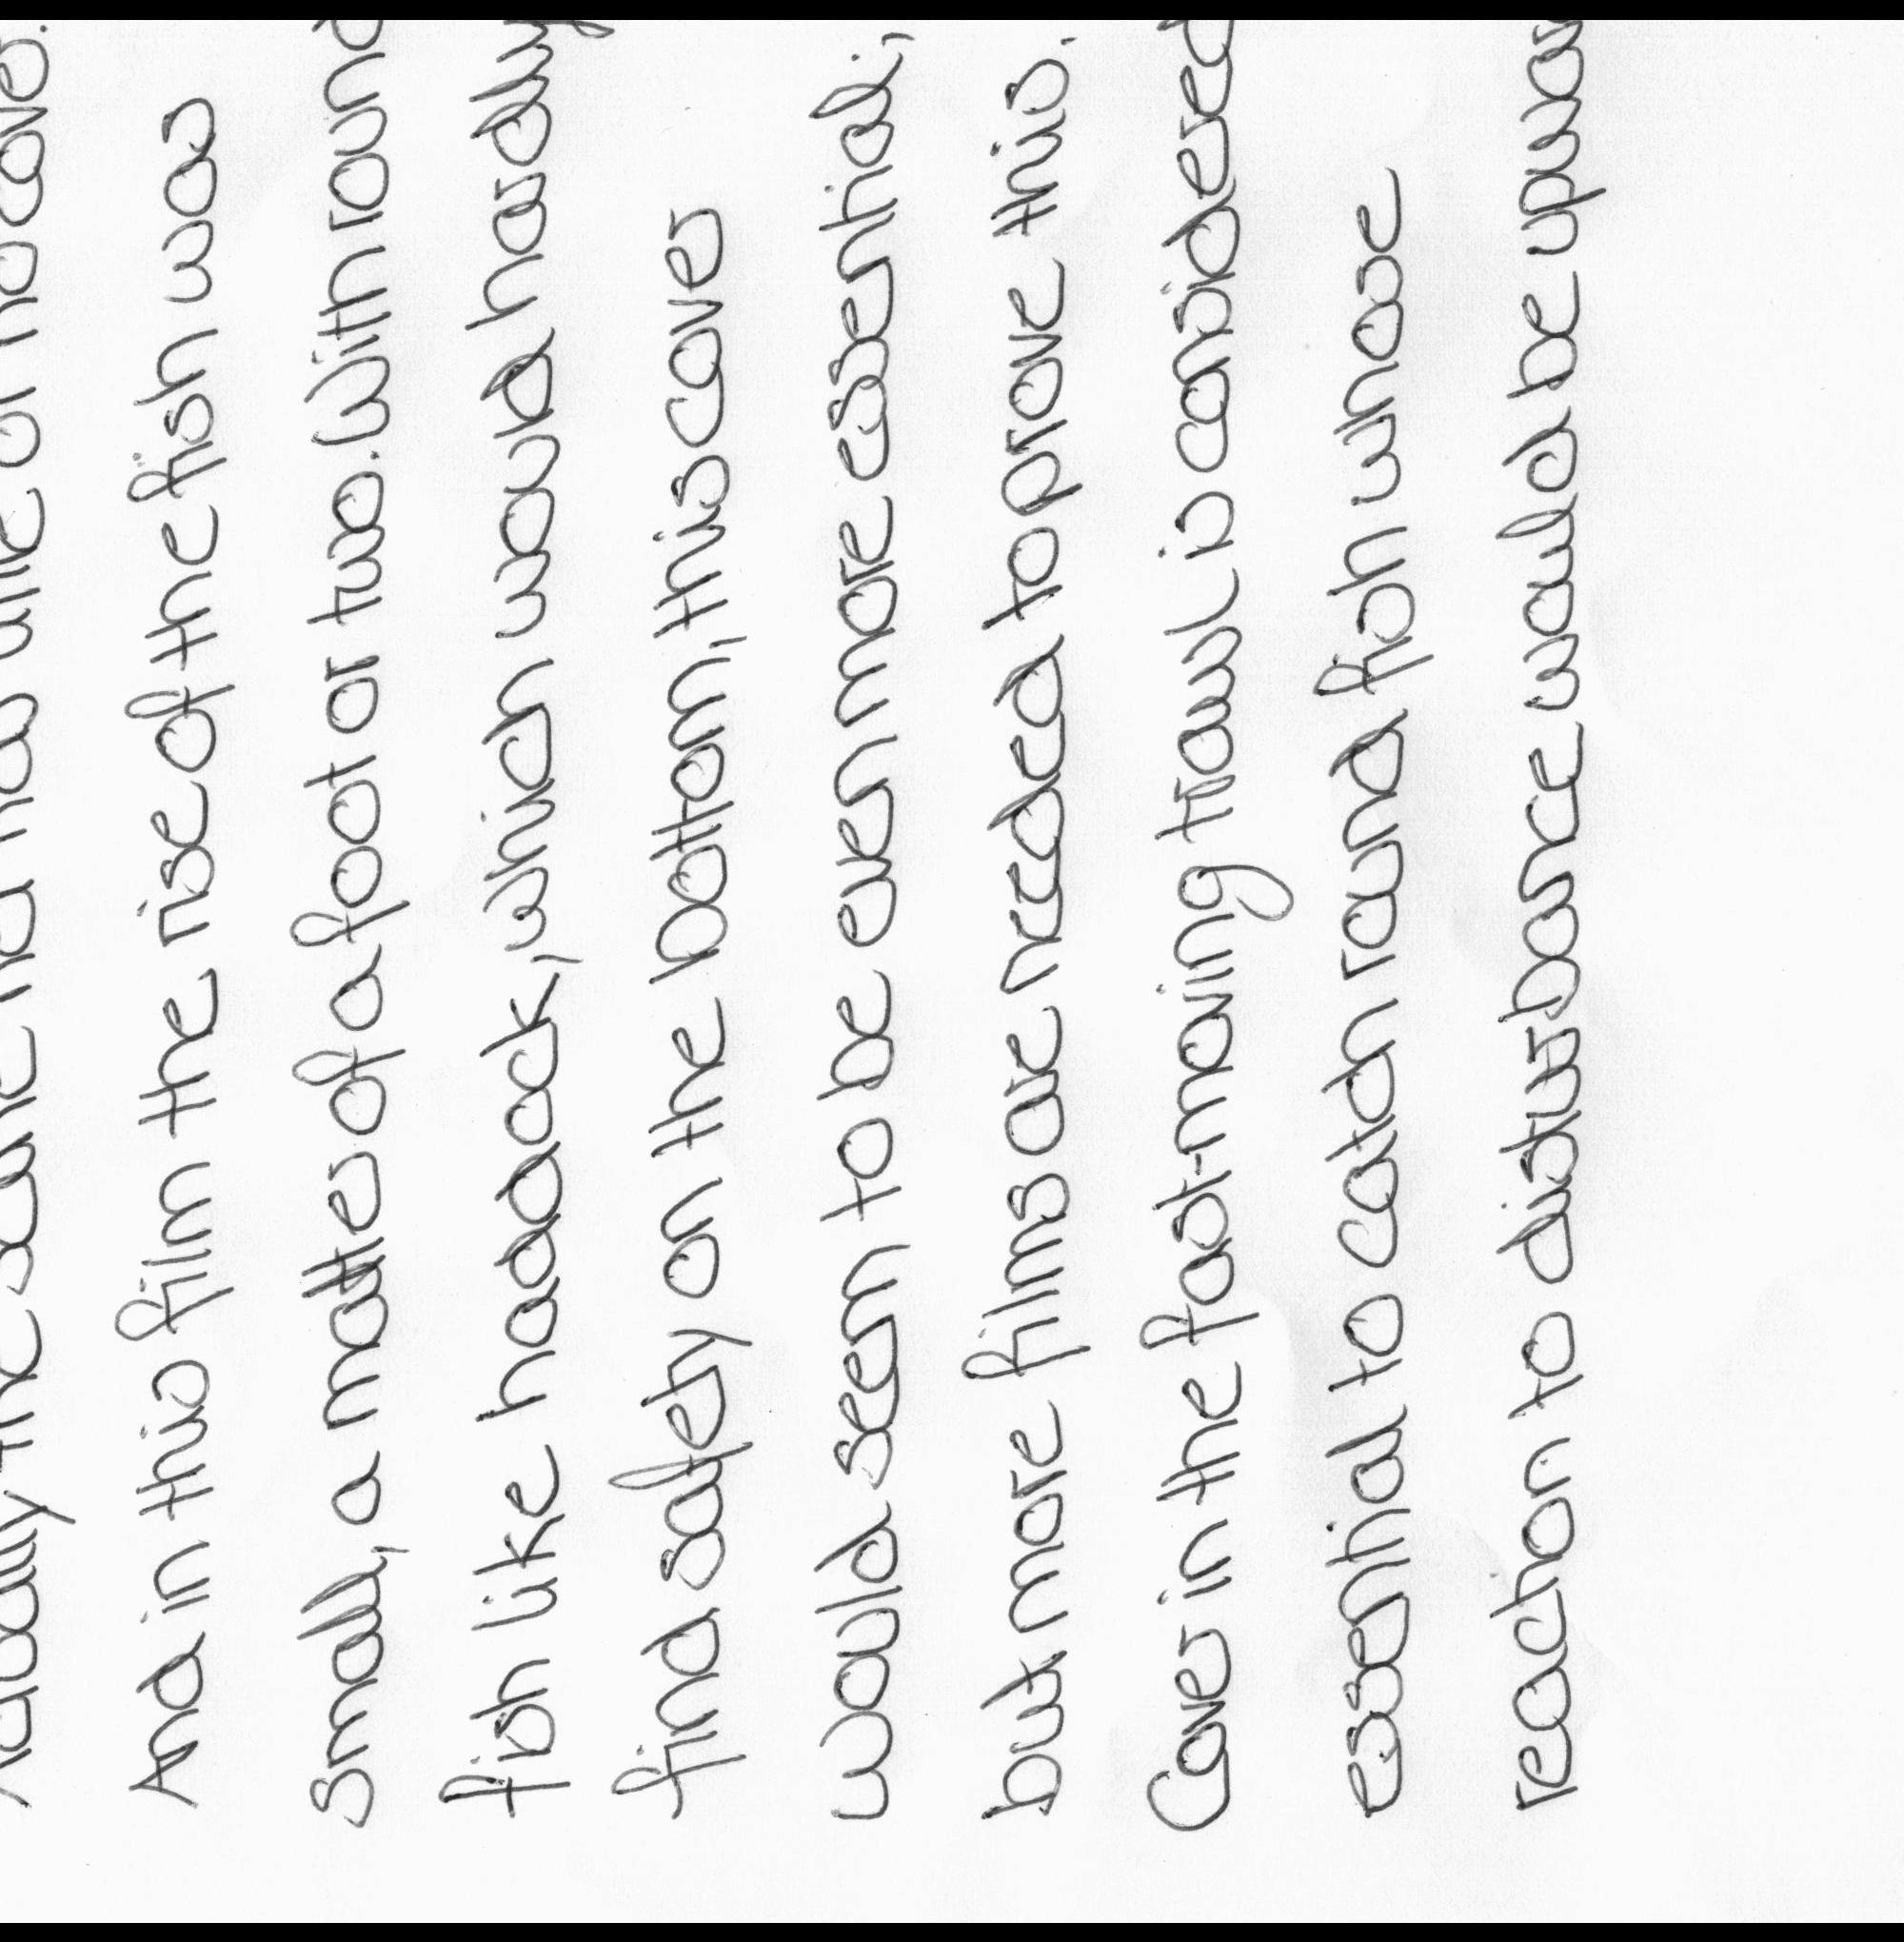 Actually the seine net had little or no cover.
And in this film the rise of the fish was
small, a matter of a foot or two. With round
fish like haddock, which would hardly
find safety on the bottom, this cover
would seem to be even more essential;
but more films are needed to prove this.
Cover in the fast-moving trawl is considered
essential to catch round fish whose
reaction to disturbance would be upwar